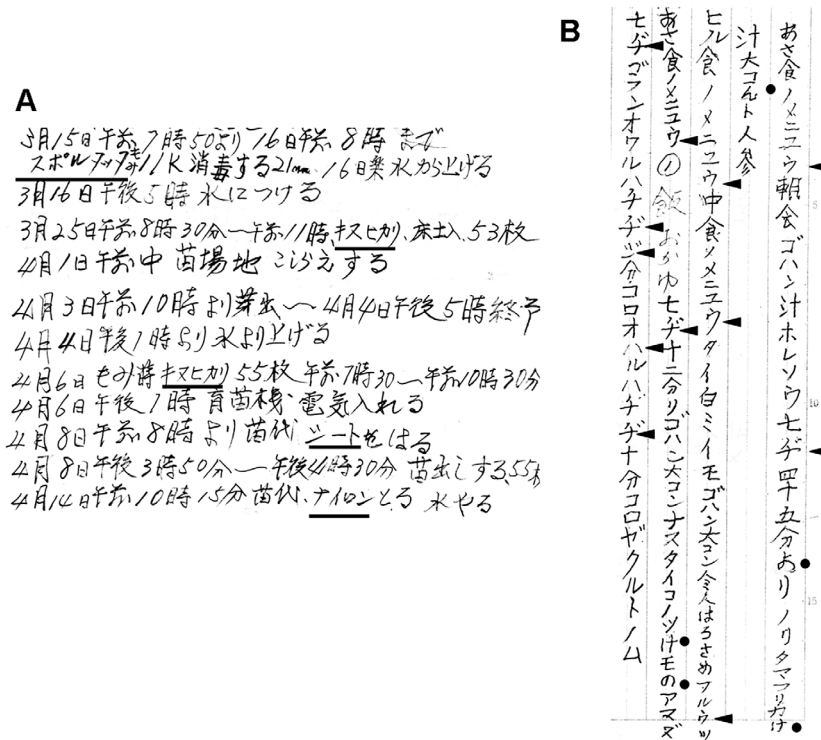 A
3月15日午前7時50より16日午前8時まで
スポルタックもみ11K消毒する21mm 16日薬水から上げる
3月16日午後5時水につける
3月25日午前8時30分〜午前11時、キスヒカリ、床土入、53枚
4月1日午前中 苗場地こしらえする
4月3日午前10時より芽出〜4月4日午後5時終予
4月4日午後1時より水より上げる
4月6日もみ蒔キヌヒカリ55枚 午前7時30〜午前10時30分
4月6日午後1時育苗機電気入れる
4月8日午前8時より苗代シートをはる
4月8日午後3時50分〜午後4時30分 苗出しする、55枚
4月14日午前10時15分苗代、ナイロンとる 水やる
B
あさ食ノメニユウ朝会ゴハン汁ホレソウ七ヂ四十五分おリノリタマフリカけ
汁大コんト人参
ヒル食ノメニユウ中食ノメニユウタイ白ミイモゴハン大コンはろさめフルウツ
あさ食ノメニユウ①飯おかゆ七ヂ十二分リゴハン大コンナスタイコノツけモのアマズ
七ヂゴフンオワルハチヂジ分コロオハルハチヂヂ十分コロヤクルトノム
5
10
15